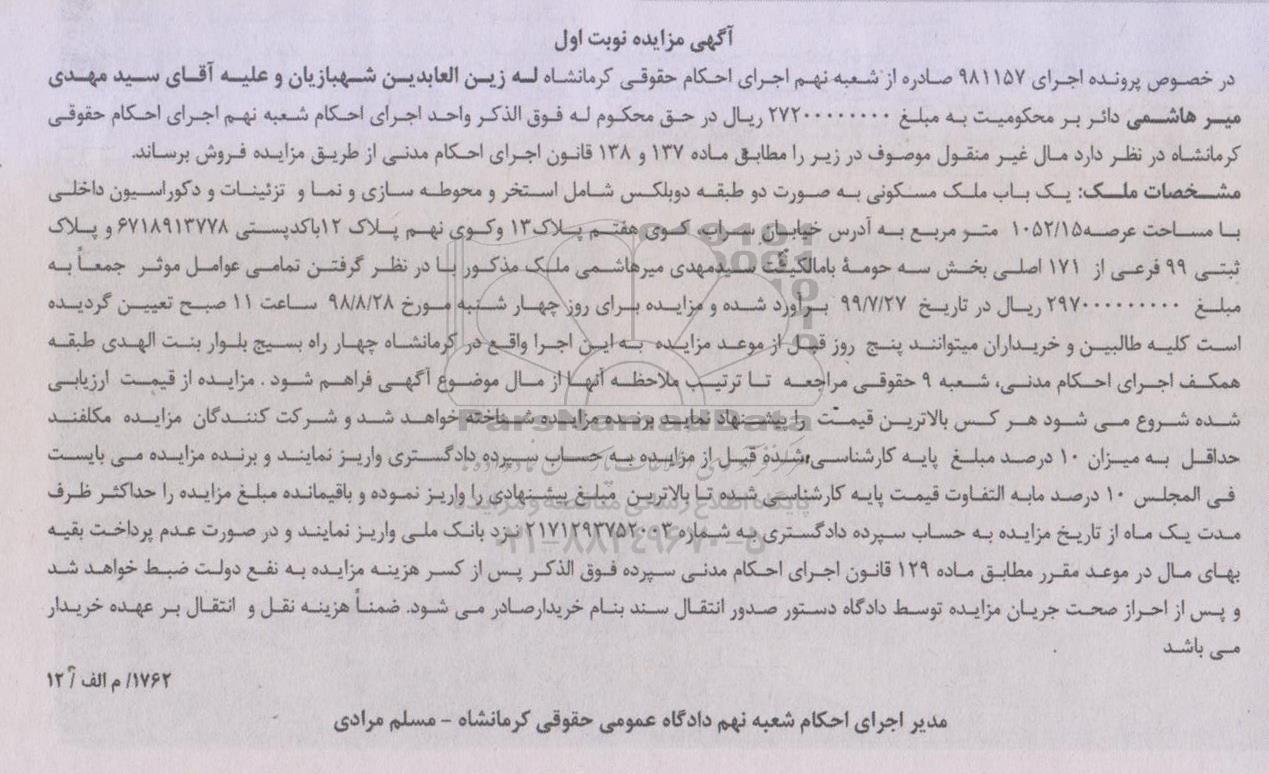 آگهی مزایده نوبت اول
در خصوص پرونده اجرای ۹۸۱۱۵۷ صادره از شعبه نهم اجرای احکام حقوقی کرمانشاه له زین العابدین شهبازیان و علیه آقای سید مهدی
میر هاشمی دائر بر محکومیت به مبلغ ۲۷۲۰۰۰۰۰۰۰۰ ریال در حق محکوم له فوق الذکر واحد اجرای احکام شعبه نهم اجرای احکام حقوقی
کرمانشاه در نظر دارد مال غیر منقول موصوف در زیر را مطابق ماده ۱۳۷ و ۱۳۸ قانون اجرای احکام مدنی از طریق مزایده فروش برساند.
مشخصات ملک: یک باب ملک مسکونی به صورت دو طبقه دوبلکس شامل استخر و محوطه سازی و نما و تزئینات و دکوراسیون داخلی
با مساحت عرصه۱۰۵۲/۱۵ متر مربع به آدرس خیابان سراب، کوی هفتم پلاک۱۳ وکوی نهم پلاک ۱۲باکدپستی ۶۷۱۸۹۱۳۷۷۸ و پلاک
ثبتی ۹۹ فرعی از ۱۷۱ اصلی بخش سه حومهٔ بامالکیت سیدمهدی میرهاشمی ملک مذکور با در نظر گرفتن تمامی عوامل موثر جمعاً به
مبلغ ۲۹۷۰۰۰۰۰۰۰۰۰ ریال در تاریخ ۹۹/۷/۲۷ برآورد شده و مزایده برای روز چهار شنبه مورخ ۹۸/۸/۲۸ ساعت ۱۱ صبح تعیین گردیده
است کلیه طالبین و خریداران میتوانند پنج روز قبل از موعد مزایده به این اجرا واقع در کرمانشاه چهار راه بسیج بلوار بنت الهدی طبقه
همکف اجرای احکام مدنی، شعبه ۹ حقوقی مراجعه تا ترتیب ملاحظه آنها از مال موضوع آگهی فراهم شود . مزایده از قیمت ارزیابی
شده شروع می شود هر کس بالاترین قیمت را پیشنهاد نماید برنده مزایده شناخته خواهد شد و شرکت کنندگان مزایده مکلفند
حداقل به میزان ۱۰ درصد مبلغ پایه کارشناسی شده قبل از مزایده به حساب سپرده دادگستری واریز نمایند و برنده مزایده می بایست
فی المجلس ۱۰ درصد مابه التفاوت قیمت پایه کارشناسی شده تا بالاترین مبلغ پیشنهادی را واریز نموده و باقیمانده مبلغ مزایده را حداکثر ظرف
مدت یک ماه از تاریخ مزایده به حساب سپرده دادگستری به شماره ۲۱۷۱۲۹۳۷۵۲۰۰۳ نزد بانک ملی واریز نمایند و در صورت عدم پرداخت بقیه
بهای مال در موعد مقرر مطابق ماده ۱۲۹ قانون اجرای احکام مدنی سپرده فوق الذکر پس از کسر هزینه مزایده به نفع دولت ضبط خواهد شد
و پس از احراز صحت جریان مزایده توسط دادگاه دستور صدور انتقال سند بنام خریدارصادر می شود. ضمناً هزینه نقل و انتقال بر عهده خریدار
می باشد
۱۷۶۲/ م الف / ۱۲
مدیر اجرای احکام شعبه نهم دادگاه عمومی حقوقی کرمانشاه - مسلم مرادی
ParsNamadData
۰۲۱-۸۸۳۴۹۶۷۰-۵